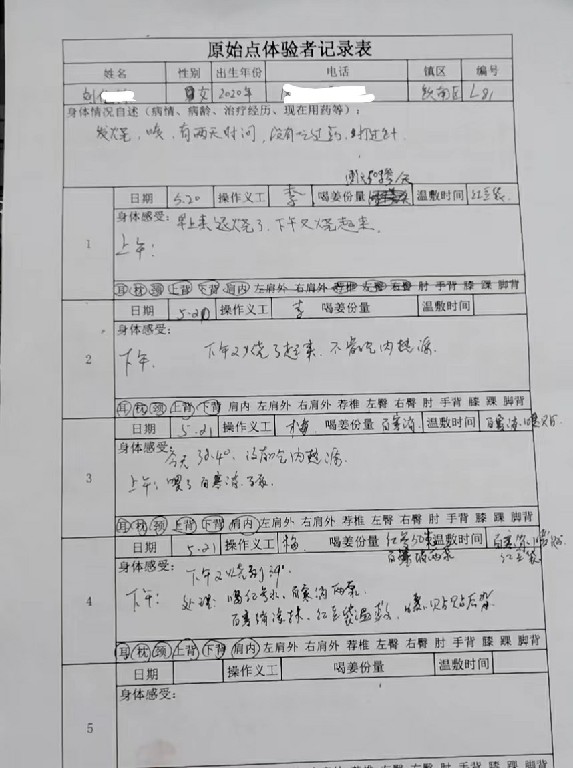 原始点体验者记录表
姓名 性别 出生年份 电话 镇区 编号
女 2020年 L81
身体情况自述（病情、病龄、治疗经历、现在用药等）：
发烧，咳，有两天时间，没有吃过药，
日期 5.20 操作义工 李 喝姜份量 温敷时间 红豆袋
身体感受： 早上来退烧了，下午又烧起来。
1
上午：
耳 枕 颈 上背 下背 肩内 左肩外 右肩外 荐椎 左臀 右臀 肘 手背 膝 踝 脚背
日期 5.20 操作义工 李 喝姜份量 温敷时间
身体感受：
2
下午， 下午又烧了起来，不肯吃内热源。
耳 枕 颈 上背 下背 肩内 左肩外 右肩外 荐椎 左臀 右臀 肘 手背 膝 踝 脚背
日期 5.21 操作义工 梅 喝姜份量 温敷时间
身体感受： 今天38.4℃，没有吃内热源。
3
上午：
耳 枕 颈 上背 下背 肩内 左肩外 右肩外 荐椎 左臀 右臀 肘 手背 膝 踝 脚背
日期 5.21 操作义工 梅 喝姜份量 温敷时间 红豆袋
身体感受： 下午又烧到39℃
4
下午： 处理：
红豆袋温敷，
耳 枕 颈 上背 下背 肩内 左肩外 右肩外 荐椎 左臀 右臀 肘 手背 膝 踝 脚背
日期 操作义工 喝姜份量 温敷时间
身体感受：
5
耳 枕 颈 上背 下背 肩内 左肩外 右肩外 荐椎 左臀 右臀 肘 手背 膝 踝 脚背